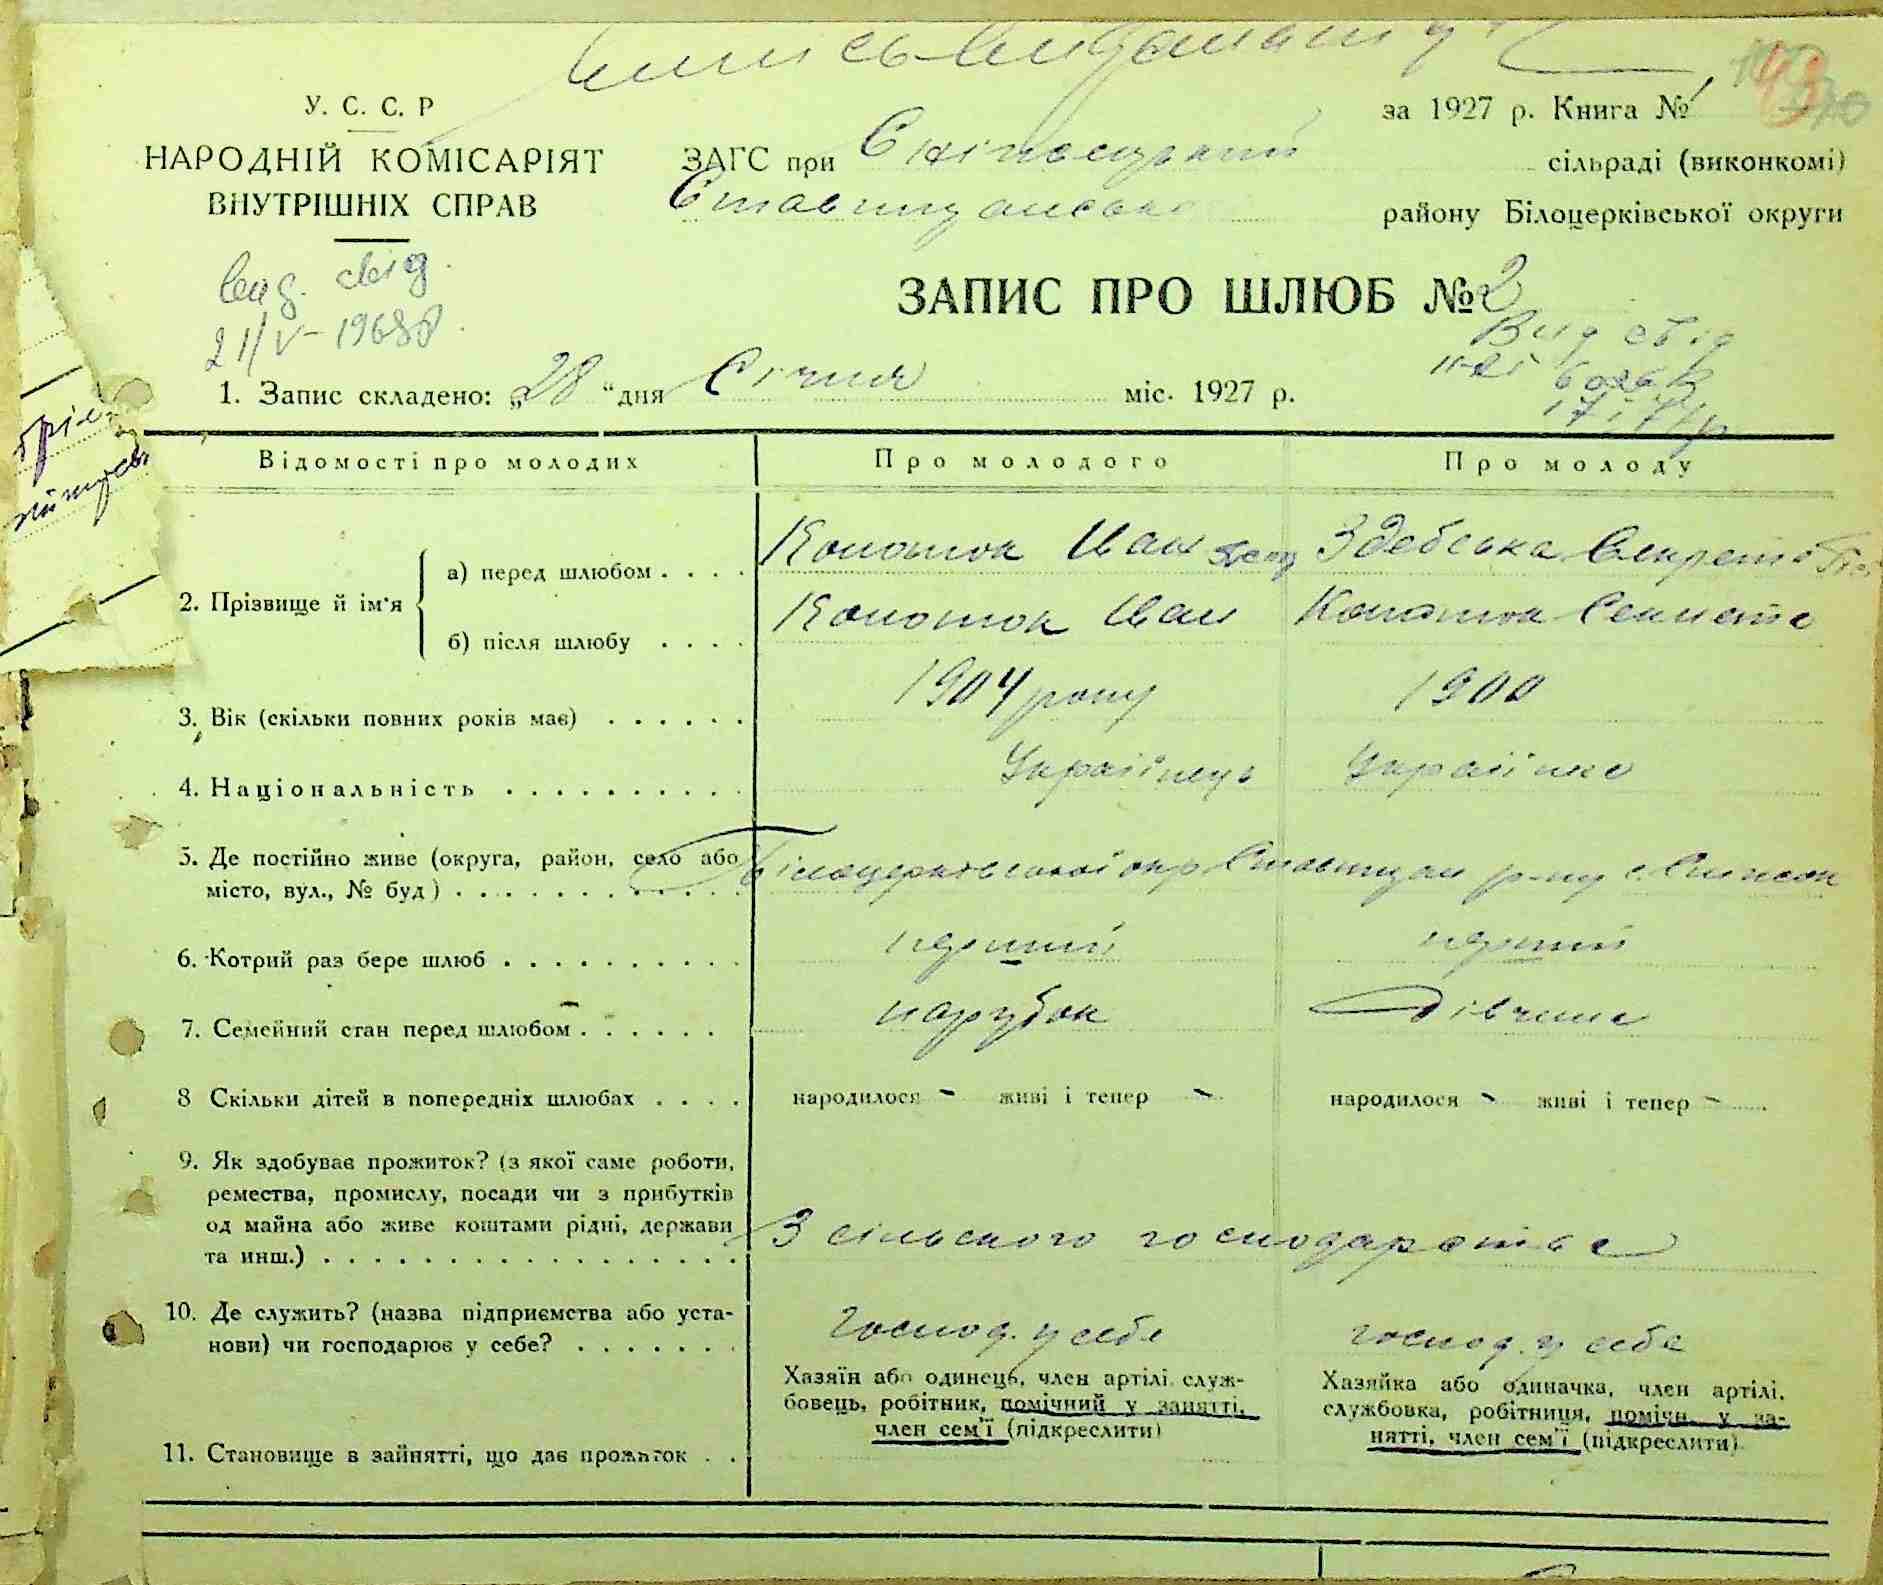 У. С. С. Р
НАРОДНІЙ КОМІСАРІЯТ
ВНУТРІШНІХ СПРАВ
за 1927 р. Книга №
ЗАГС при сільраді (виконкомі)
району Білоцерківської округи
свід.
21/V-1968
ЗАПИС ПРО ШЛЮБ № 2
Вид свід
1. Запис складено: „28 “ дня Січня міс. 1927 р.
Відомості про молодих
Про молодого
Про молоду
2. Прізвище й ім'я
а) перед шлюбом . . . .
Іван
Здебська
б) після шлюбу . . . .
Іван
3. Вік (скільки повних років має) . . . . . .
1904 року
1900
4. Національність . . . . . . . . . .
Українець
Українка
5. Де постійно живе (округа, район, село або
місто, вул., № буд) . . . . . . . . . . . .
Білоцерковської окр р-ну с.
6. Котрий раз бере шлюб . . . . . . . . . .
перший
перший
7. Семейний стан перед шлюбом . . . . . .
парубок
дівчина
8 Скільки дітей в попередніх шлюбах . . . .
народилося – живі і тепер –
народилося – живі і тепер –
9. Як здобуває прожиток? (з якої саме роботи,
ремества, промислу, посади чи з прибутків
од майна або живе коштами рідні, держави
та инш.) . . . . . . . . . . . . . . . . .
З сільського господарства
10. Де служить? (назва підприємства або уста-
нови) чи господарює у себе? . . . . . . .
господ. у себе
господ. у себе
11. Становище в зайнятті, що дає прожиток . .
Хазяїн або одинець, член артілі, служ-
бовець, робітник, помічний у занятті,
член сем'ї (підкреслити)
Хазяйка або одиначка, член артілі,
службовка, робітниця, помічн. у за-
нятті, член сем'ї (підкреслити)